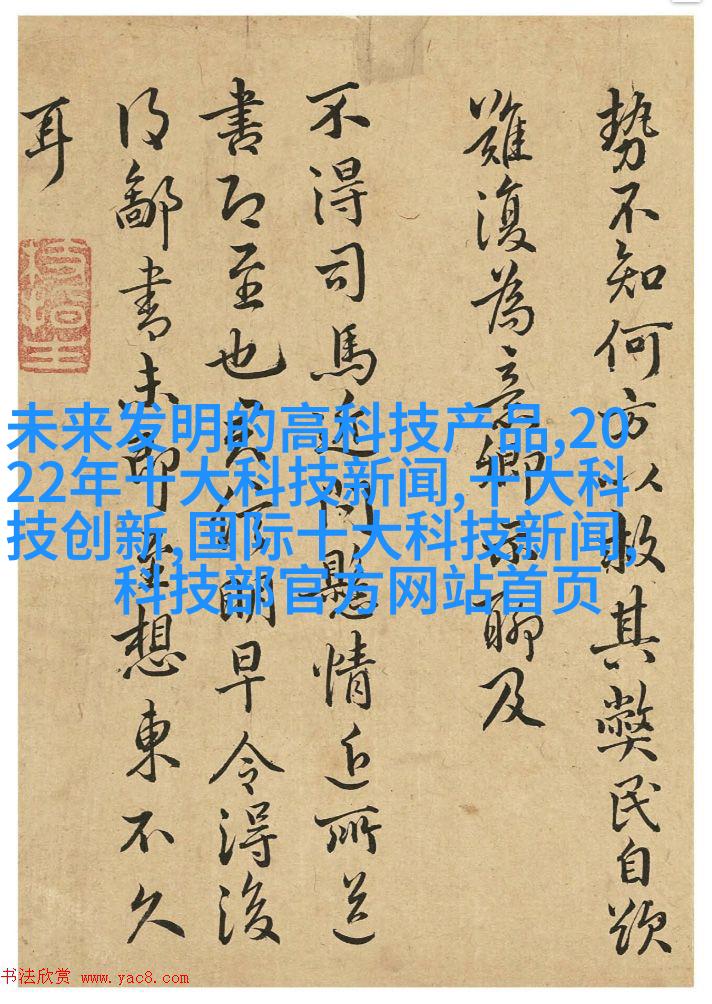 勢不知何方以救其弊民自
難復為意卿示聊及
不得司馬近問懸情近所送
書即至也具明早令得後
得鄙書未即想東不久
耳
未来发明的高科技产品,20
22年十大科技新闻,十大科
技创新,国际十大科技新闻,
科技部官方网站首页
书法欣赏 www.yac8.com